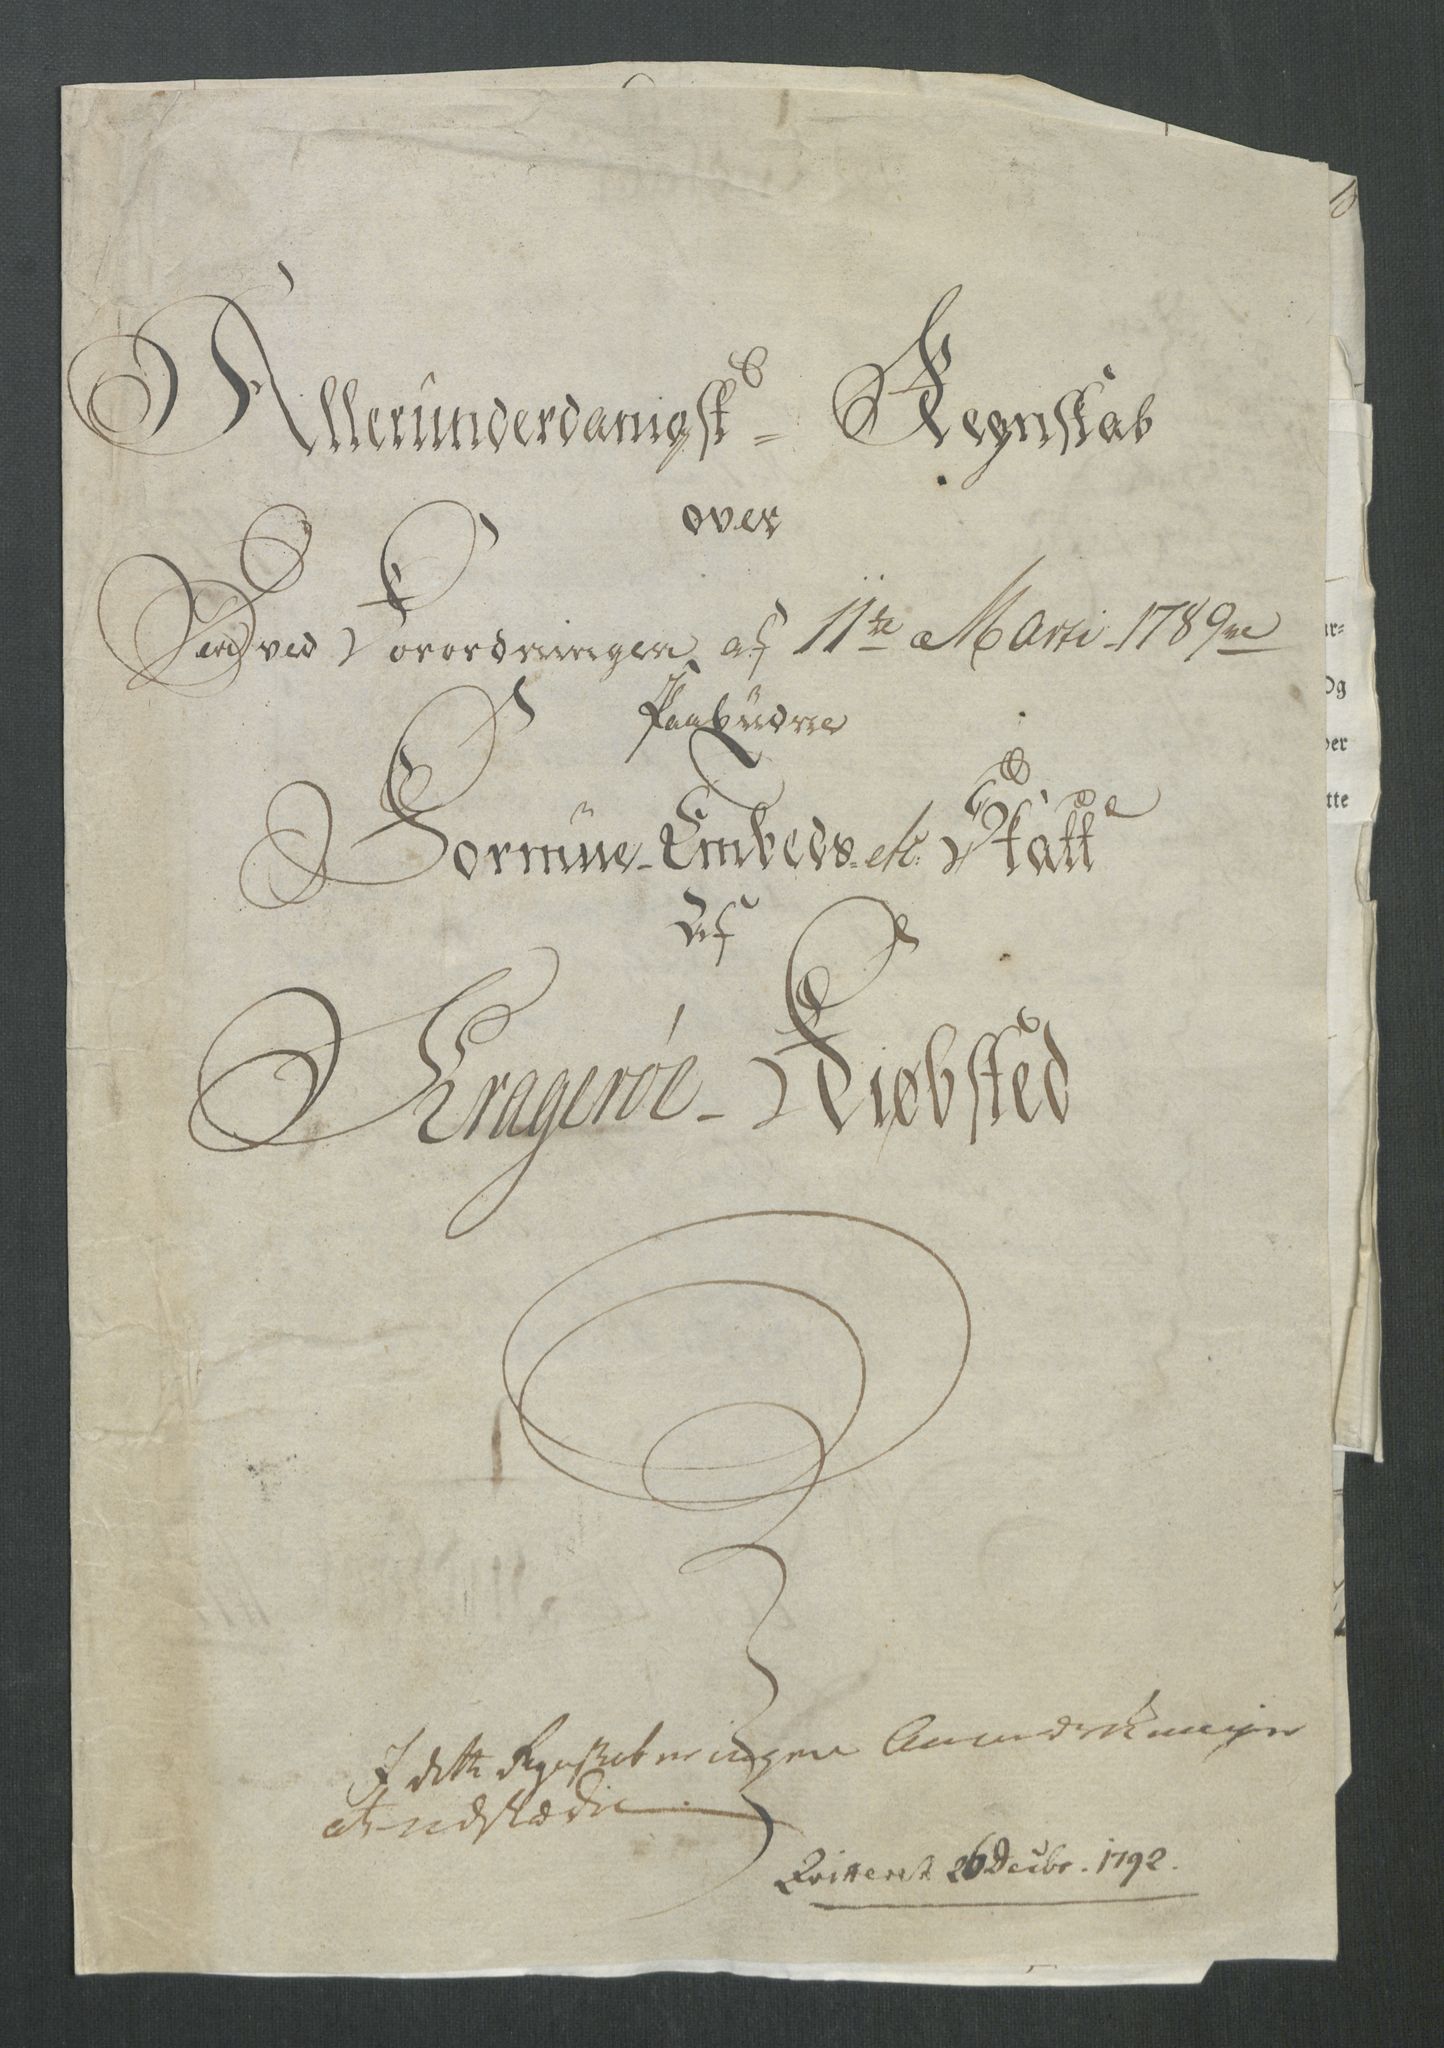 Allerunderdanigst= Regnskab
over
Den ved Forordningen af 11te Marti 1789ve
Paabudne
Formue-Embeds-etc: Skatt
Af
Kragerøe-Kiøbsted
I dette Regnskab er ingen
Qvitteret 26 Decbr. 1792.
ar-
Og
ver
tte